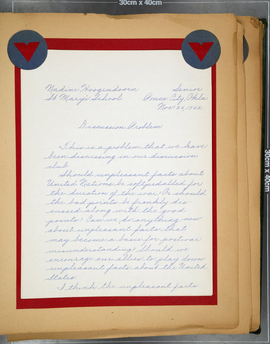 Nadine Hoogendoorn Senior
St Mary's School Ponca City, Okla.
Nov 27, 1942
Discussion Problem
This is a problem that we have
been discussing in our discussion
club.
Should unpleasant facts about
United Nations be soft pedalled for
the duration of the war, or should
the bad points be frankly dis
cussed along with the good
points? Can we do anything now
about unpleasant facts that
may become a basis for postwar
misunderstanding? Should we
encourage our allies to play down
unpleasant facts about the United
States.
I think the unpleasant facts
30cm x 40cm
30cm x 40cm